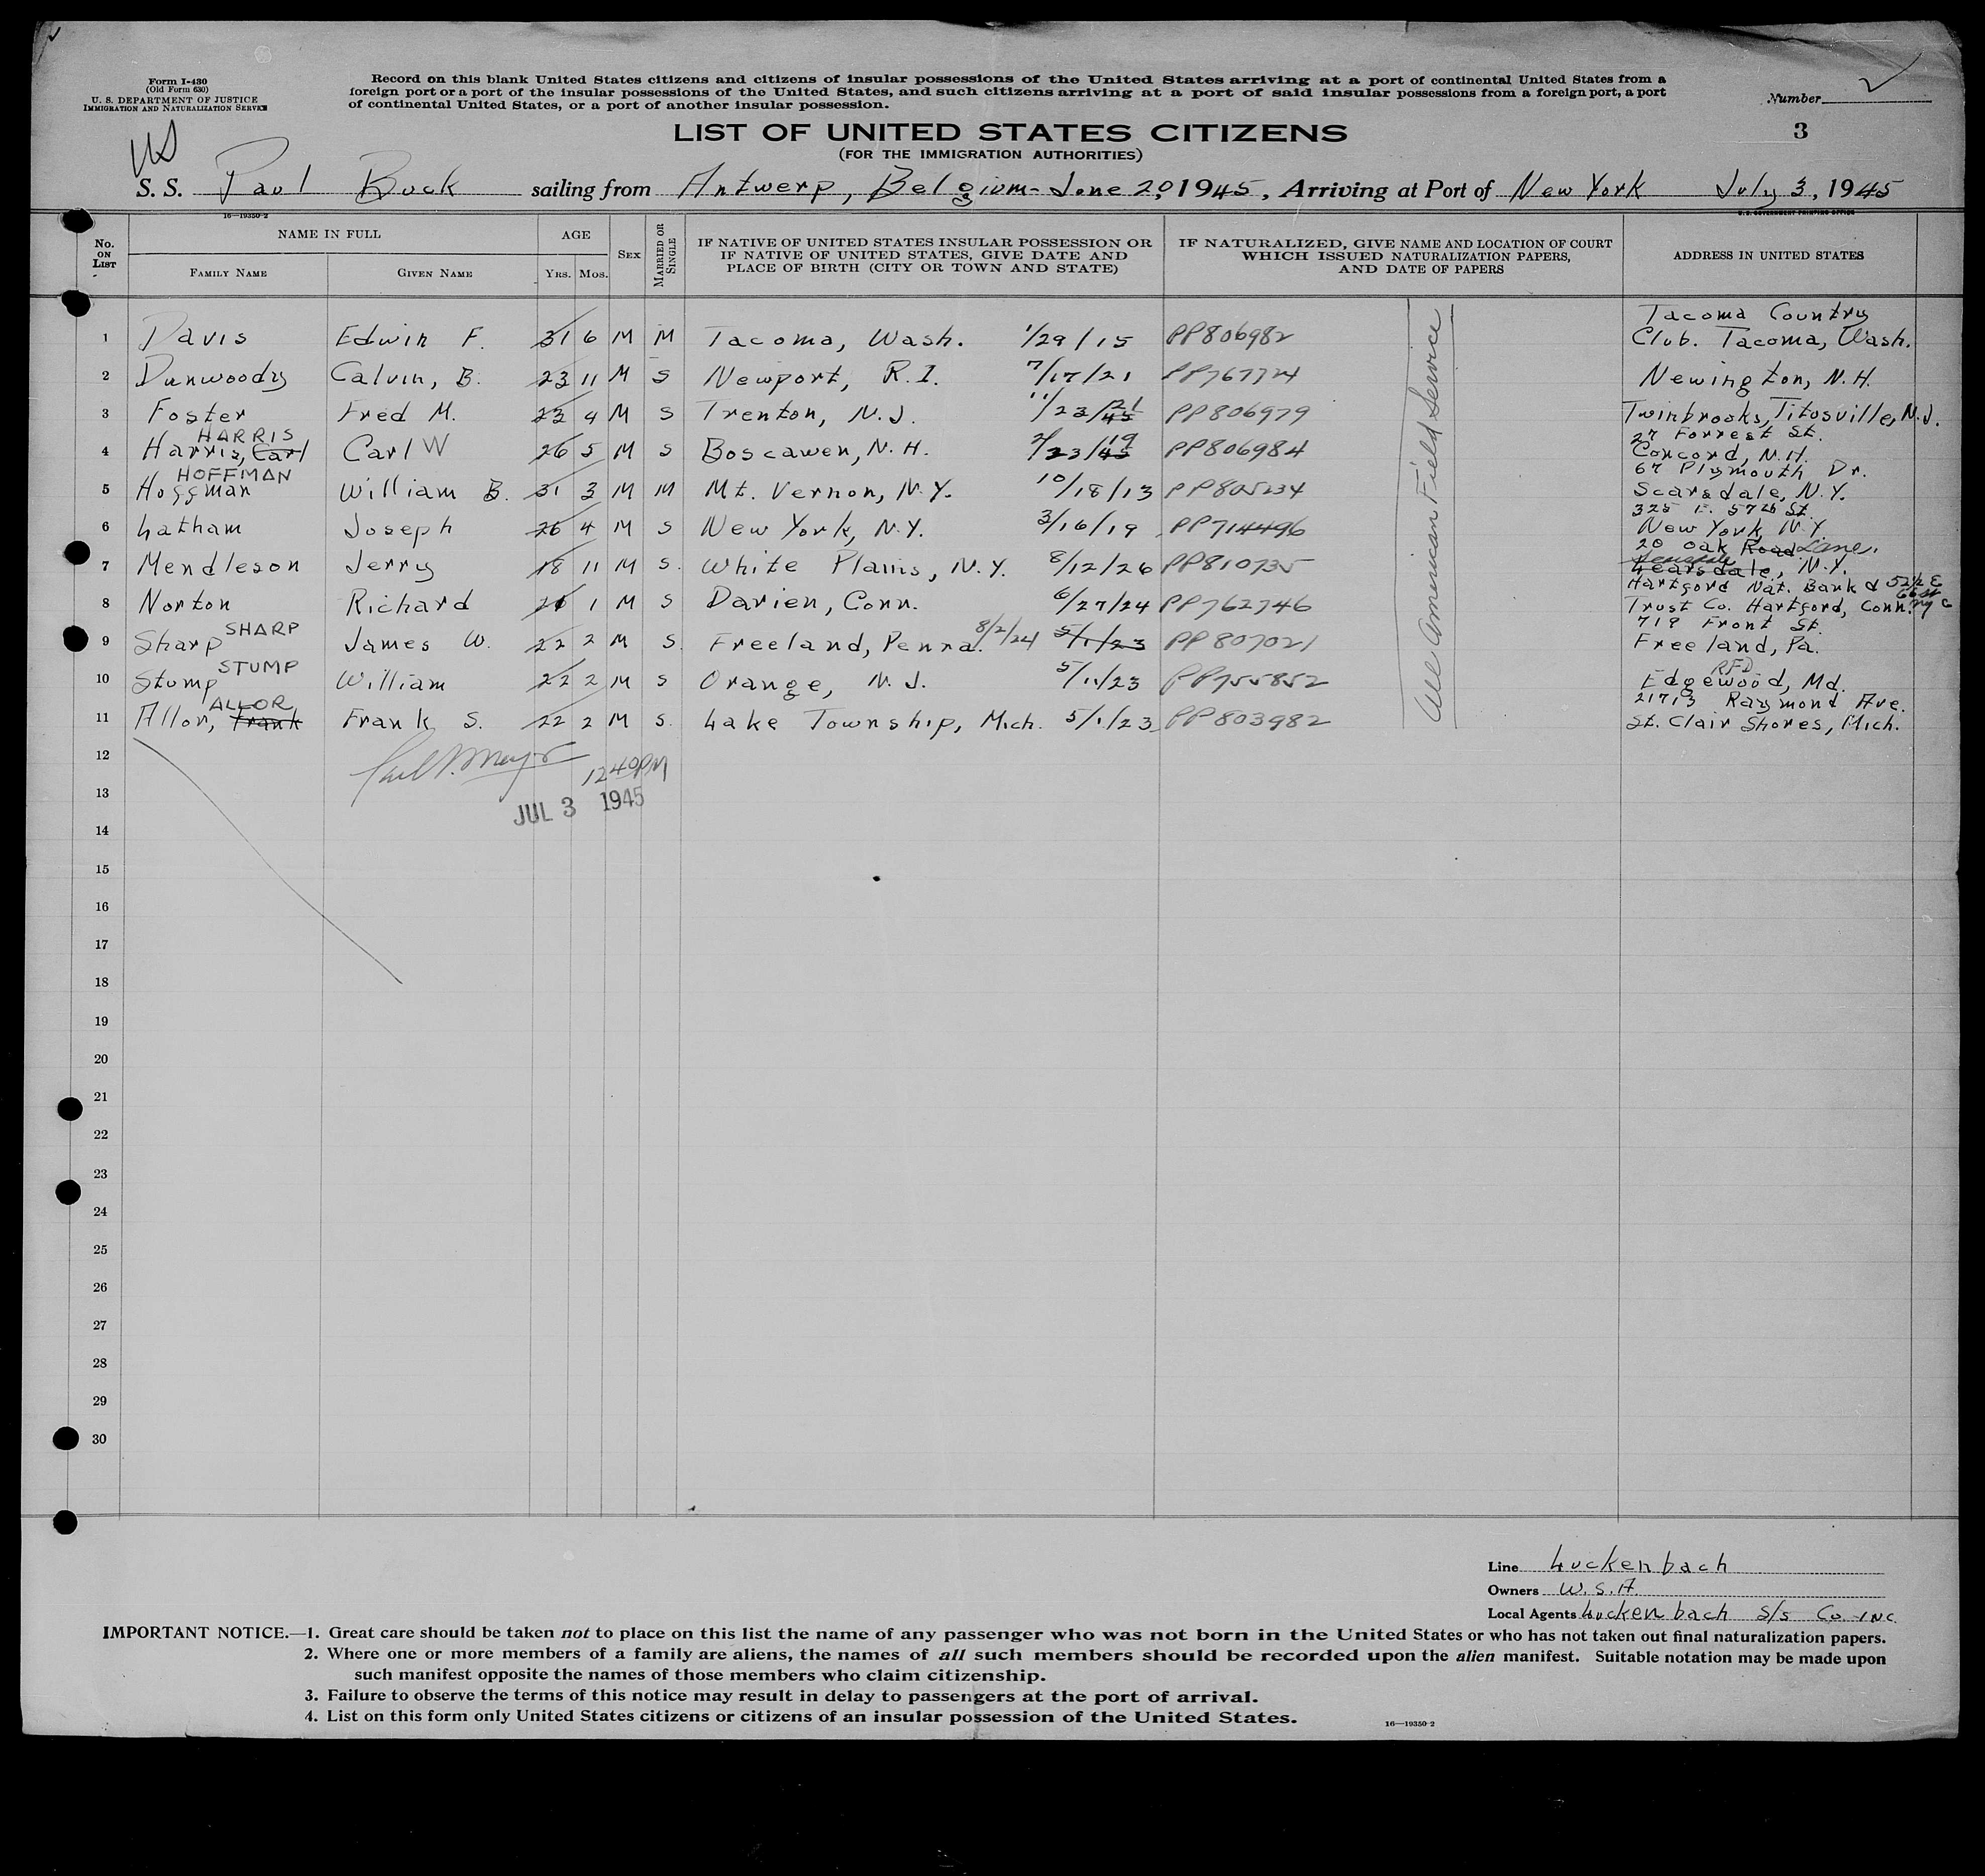 Form I-430
(Old Form 630)
U. S. DEPARTMENT OF JUSTICE
IMMIGRATION AND NATURALIZATION SERVICE
Record on this blank United States citizens and citizens of insular possessions of the United States arriving at a port of continental United States from a
foreign port or a port of the insular possessions of the United States, and such citizens arriving at a port of said insular possessions from a foreign port, a port
of continental United States, or a port of another insular possession.
Number
3
LIST OF UNITED STATES CITIZENS
(FOR THE IMMIGRATION AUTHORITIES)
US
S. S. Paul Buck sailing from Antwerp, Belgium - June 20, 1945, Arriving at Port of New York July 3, 1945
16—19350-2
U. S. GOVERNMENT PRINTING OFFICE
No. ON LIST
NAME IN FULL
FAMILY NAME
GIVEN NAME
AGE
YRS. MOS.
SEX
MARRIED OR SINGLE
IF NATIVE OF UNITED STATES INSULAR POSSESSION OR
IF NATIVE OF UNITED STATES, GIVE DATE AND
PLACE OF BIRTH (CITY OR TOWN AND STATE)
IF NATURALIZED, GIVE NAME AND LOCATION OF COURT
WHICH ISSUED NATURALIZATION PAPERS,
AND DATE OF PAPERS
ADDRESS IN UNITED STATES
Tacoma Country
1 Davis Edwin F. 31 6 M M Tacoma, Wash. 1/29/15 PP806982 Club. Tacoma, Wash.
2 Dunwoody Calvin, B. 23 11 M S Newport, R.I. 7/17/21 PP767724 Newington, N.H.
3 Foster Fred M. 23 4 M S Trenton, N.J. 11/23/45 21 PP806979 Twinbrooks, Titusville, N.J.
HARRIS 27 Forrest St.
4 Harris, Carl Carl W 26 5 M S Boscawen, N.H. 2/23/45 19 PP806984 Concord, N.H.
HOFFMAN 67 Plymouth Dr.
5 Hoffman William B. 31 3 M M Mt. Vernon, N.Y. 10/18/13 PP805234 Scarsdale, N.Y.
325 E. 57th St.
6 Latham Joseph 26 4 M S New York, N.Y. 3/16/19 PP714496 New York, N.Y.
20 Oak Road Lane.
7 Mendleson Jerry 18 11 M S. White Plains, N.Y. 8/12/26 PP810735 Learsdale, N.Y.
Hartford Nat. Bank & 52½ E
8 Norton Richard 1 M S Darien, Conn. 6/27/24 PP762746 Trust Co. Hartford, Conn.
SHARP 719 Front St.
9 Sharp James W. 22 2 M S. Freeland, Penna. 8/2/24 5/1/23 PP807021 Freeland, Pa.
STUMP RFD
10 Stump William 22 2 M S Orange, N.J. 5/1/23 PP755852 Edgewood, Md.
ALLOR 21713 Raymond Ave.
11 Allor, Frank Frank S. 22 2 M S. Lake Township, Mich. 5/1/23 PP803982 St. Clair Shores, Mich.
All American Field Service
12
12 40 PM
13
JUL 3 1945
14
15
16
17
18
19
20
21
22
23
24
25
26
27
28
29
30
Line Luckenbach
Owners W.S.A.
Local Agents Luckenbach S/S Co. INC.
IMPORTANT NOTICE.—1. Great care should be taken not to place on this list the name of any passenger who was not born in the United States or who has not taken out final naturalization papers.
2. Where one or more members of a family are aliens, the names of all such members should be recorded upon the alien manifest. Suitable notation may be made upon
such manifest opposite the names of those members who claim citizenship.
3. Failure to observe the terms of this notice may result in delay to passengers at the port of arrival.
4. List on this form only United States citizens or citizens of an insular possession of the United States.
16—19350-2